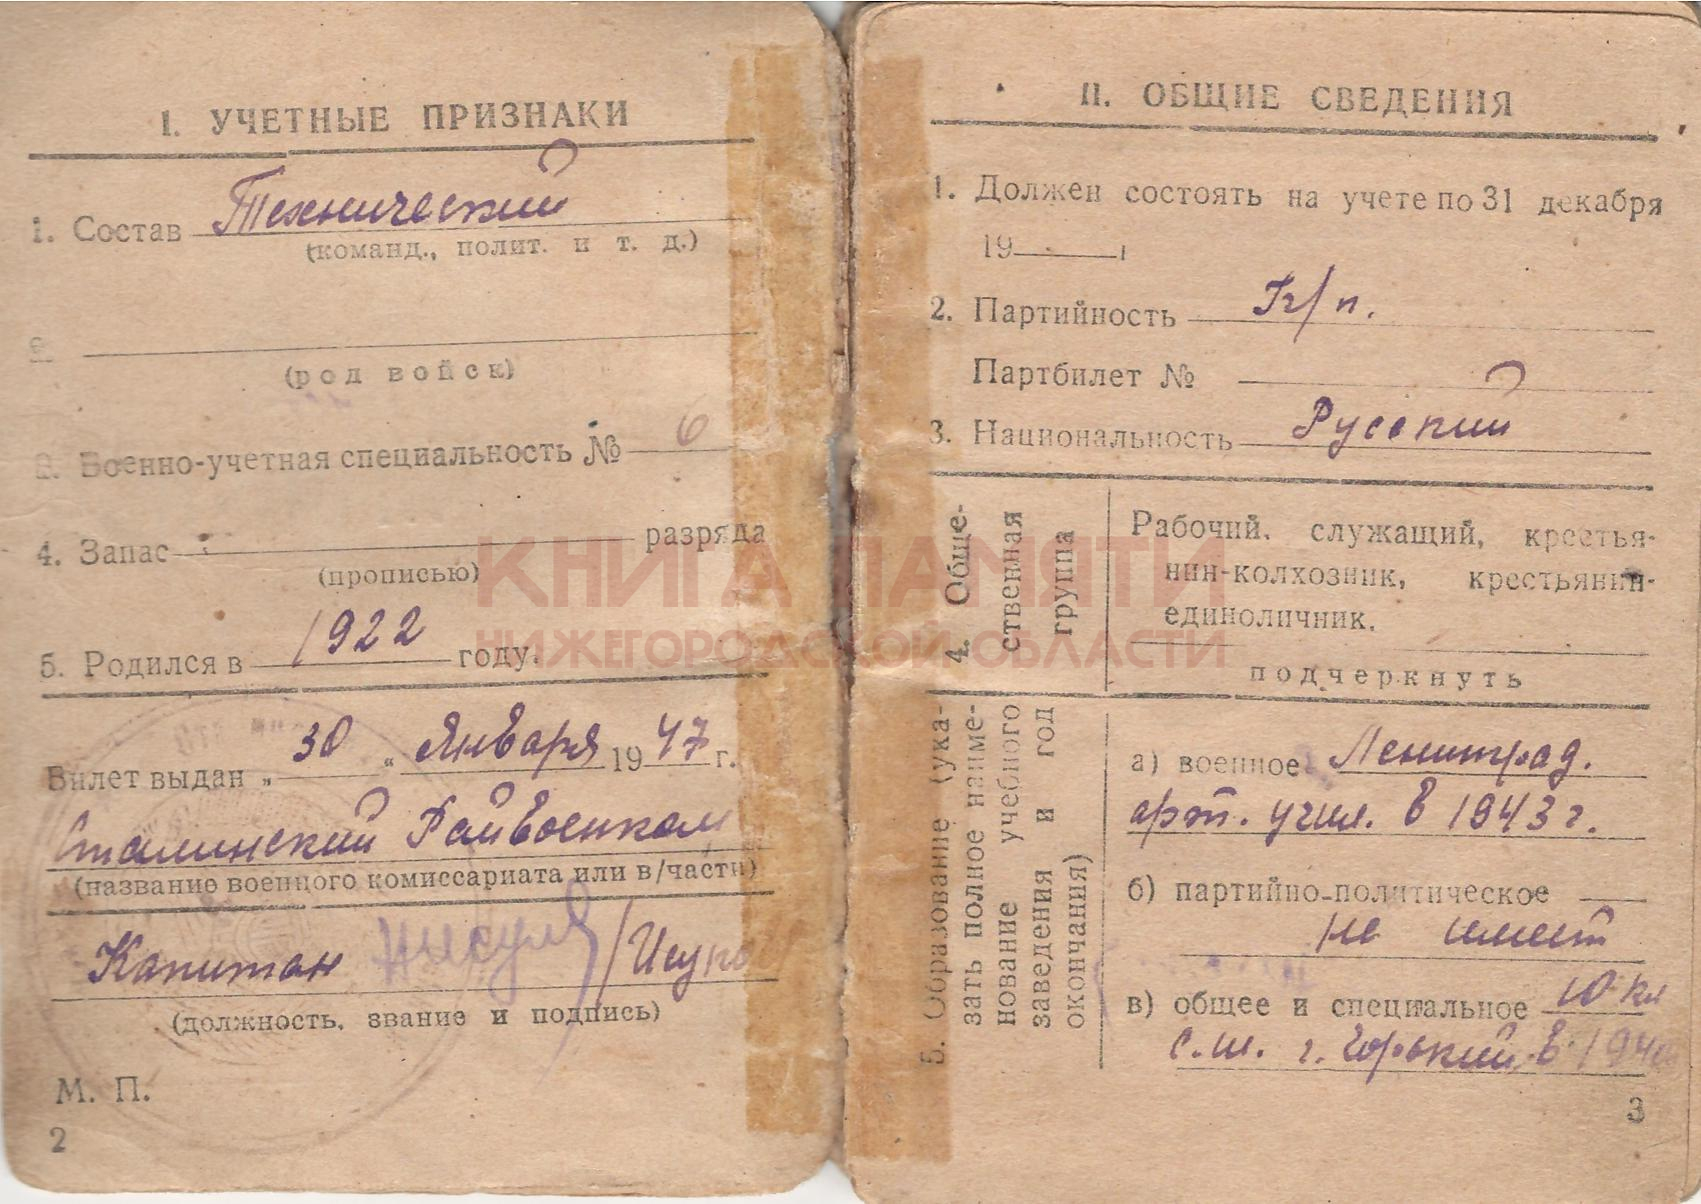 I. УЧЕТНЫЕ ПРИЗНАКИ
1. Состав Технический
(команд., полит. и т. д.)
(род войск)
3. Военно-учетная специальность № 6
4. Запас разряда
(прописью)
5. Родился в 1922 году.
Билет выдан „ 30 “ Января 1947 г.
Сталинский Райвоенком
(название военного комиссариата или в/части)
Капитан
(должность, звание и подпись)
М. П.
2
II. ОБЩИЕ СВЕДЕНИЯ
1. Должен состоять на учете по 31 декабря
19
2. Партийность
Партбилет №
3. Национальность Русский
4. Обще-
ственная
группа
Рабочий, служащий, крестья-
нин-колхозник, крестьянин-
единоличник.
подчеркнуть
5. Образование (ука-
зать полное наиме-
нование учебного
заведения и год
окончания)
а) военное Ленинград.
арт. учил. в 1943 г.
б) партийно-политическое
не имеет
в) общее и специальное 10 кл
с.ш. г. Горький в
3
КНИГА ПАМЯТИ
НИЖЕГОРОДСКОЙ ОБЛАСТИ